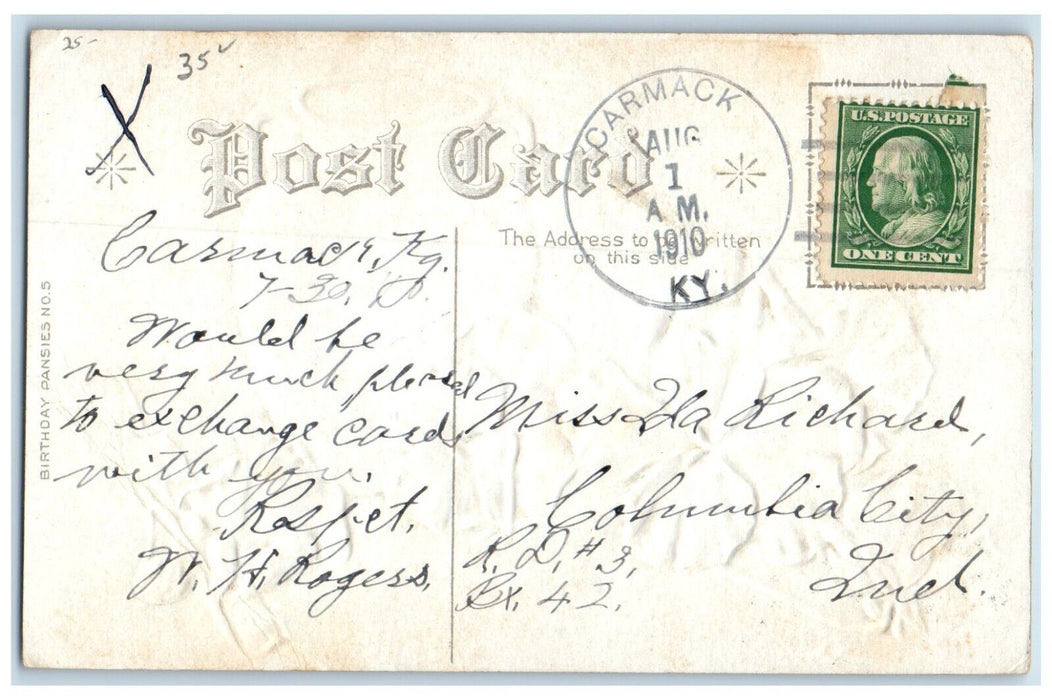 25-
35
X
Post Card
CARMACK
AUG
1
A M.
1910
KY.
U.S. POSTAGE
ONE CENT
The Address to be written
on this side
BIRTHDAY PANSIES NO.5
Carmack, Ky.
7-30, 10.
Would be
very much pleased
to exchange cards
with you.
Respct.
W. H. Rogers.
Miss Ida Richard,
Columbia City,
R. D. #3,
Bx. 42.
Ind.